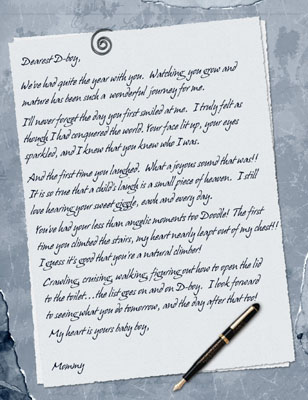 Dearest D-boy,
We've had quite the year with you. Watching you grow and
mature has been such a wonderful journey for me.
I'll never forget the day you first smiled at me. I truly felt as
though I had conquered the world. Your face lit up, your eyes
sparkled, and I knew that you knew who I was.
And the first time you laughed. What a joyous sound that was!!
It is so true that a child's laugh is a small piece of heaven. I still
love hearing your sweet giggle, each and every day.
You've had your less than angelic moments too Doodle! The first
time you climbed the stairs, my heart nearly leapt out of my chest!!
I guess it's good that you're a natural climber!
Crawling, cruising, walking, figuring out how to open the lid
to the toilet...the list goes on and on D-boy. I look forward
to seeing what you do tomorrow, and the day after that too!
My heart is yours baby boy,
Mommy